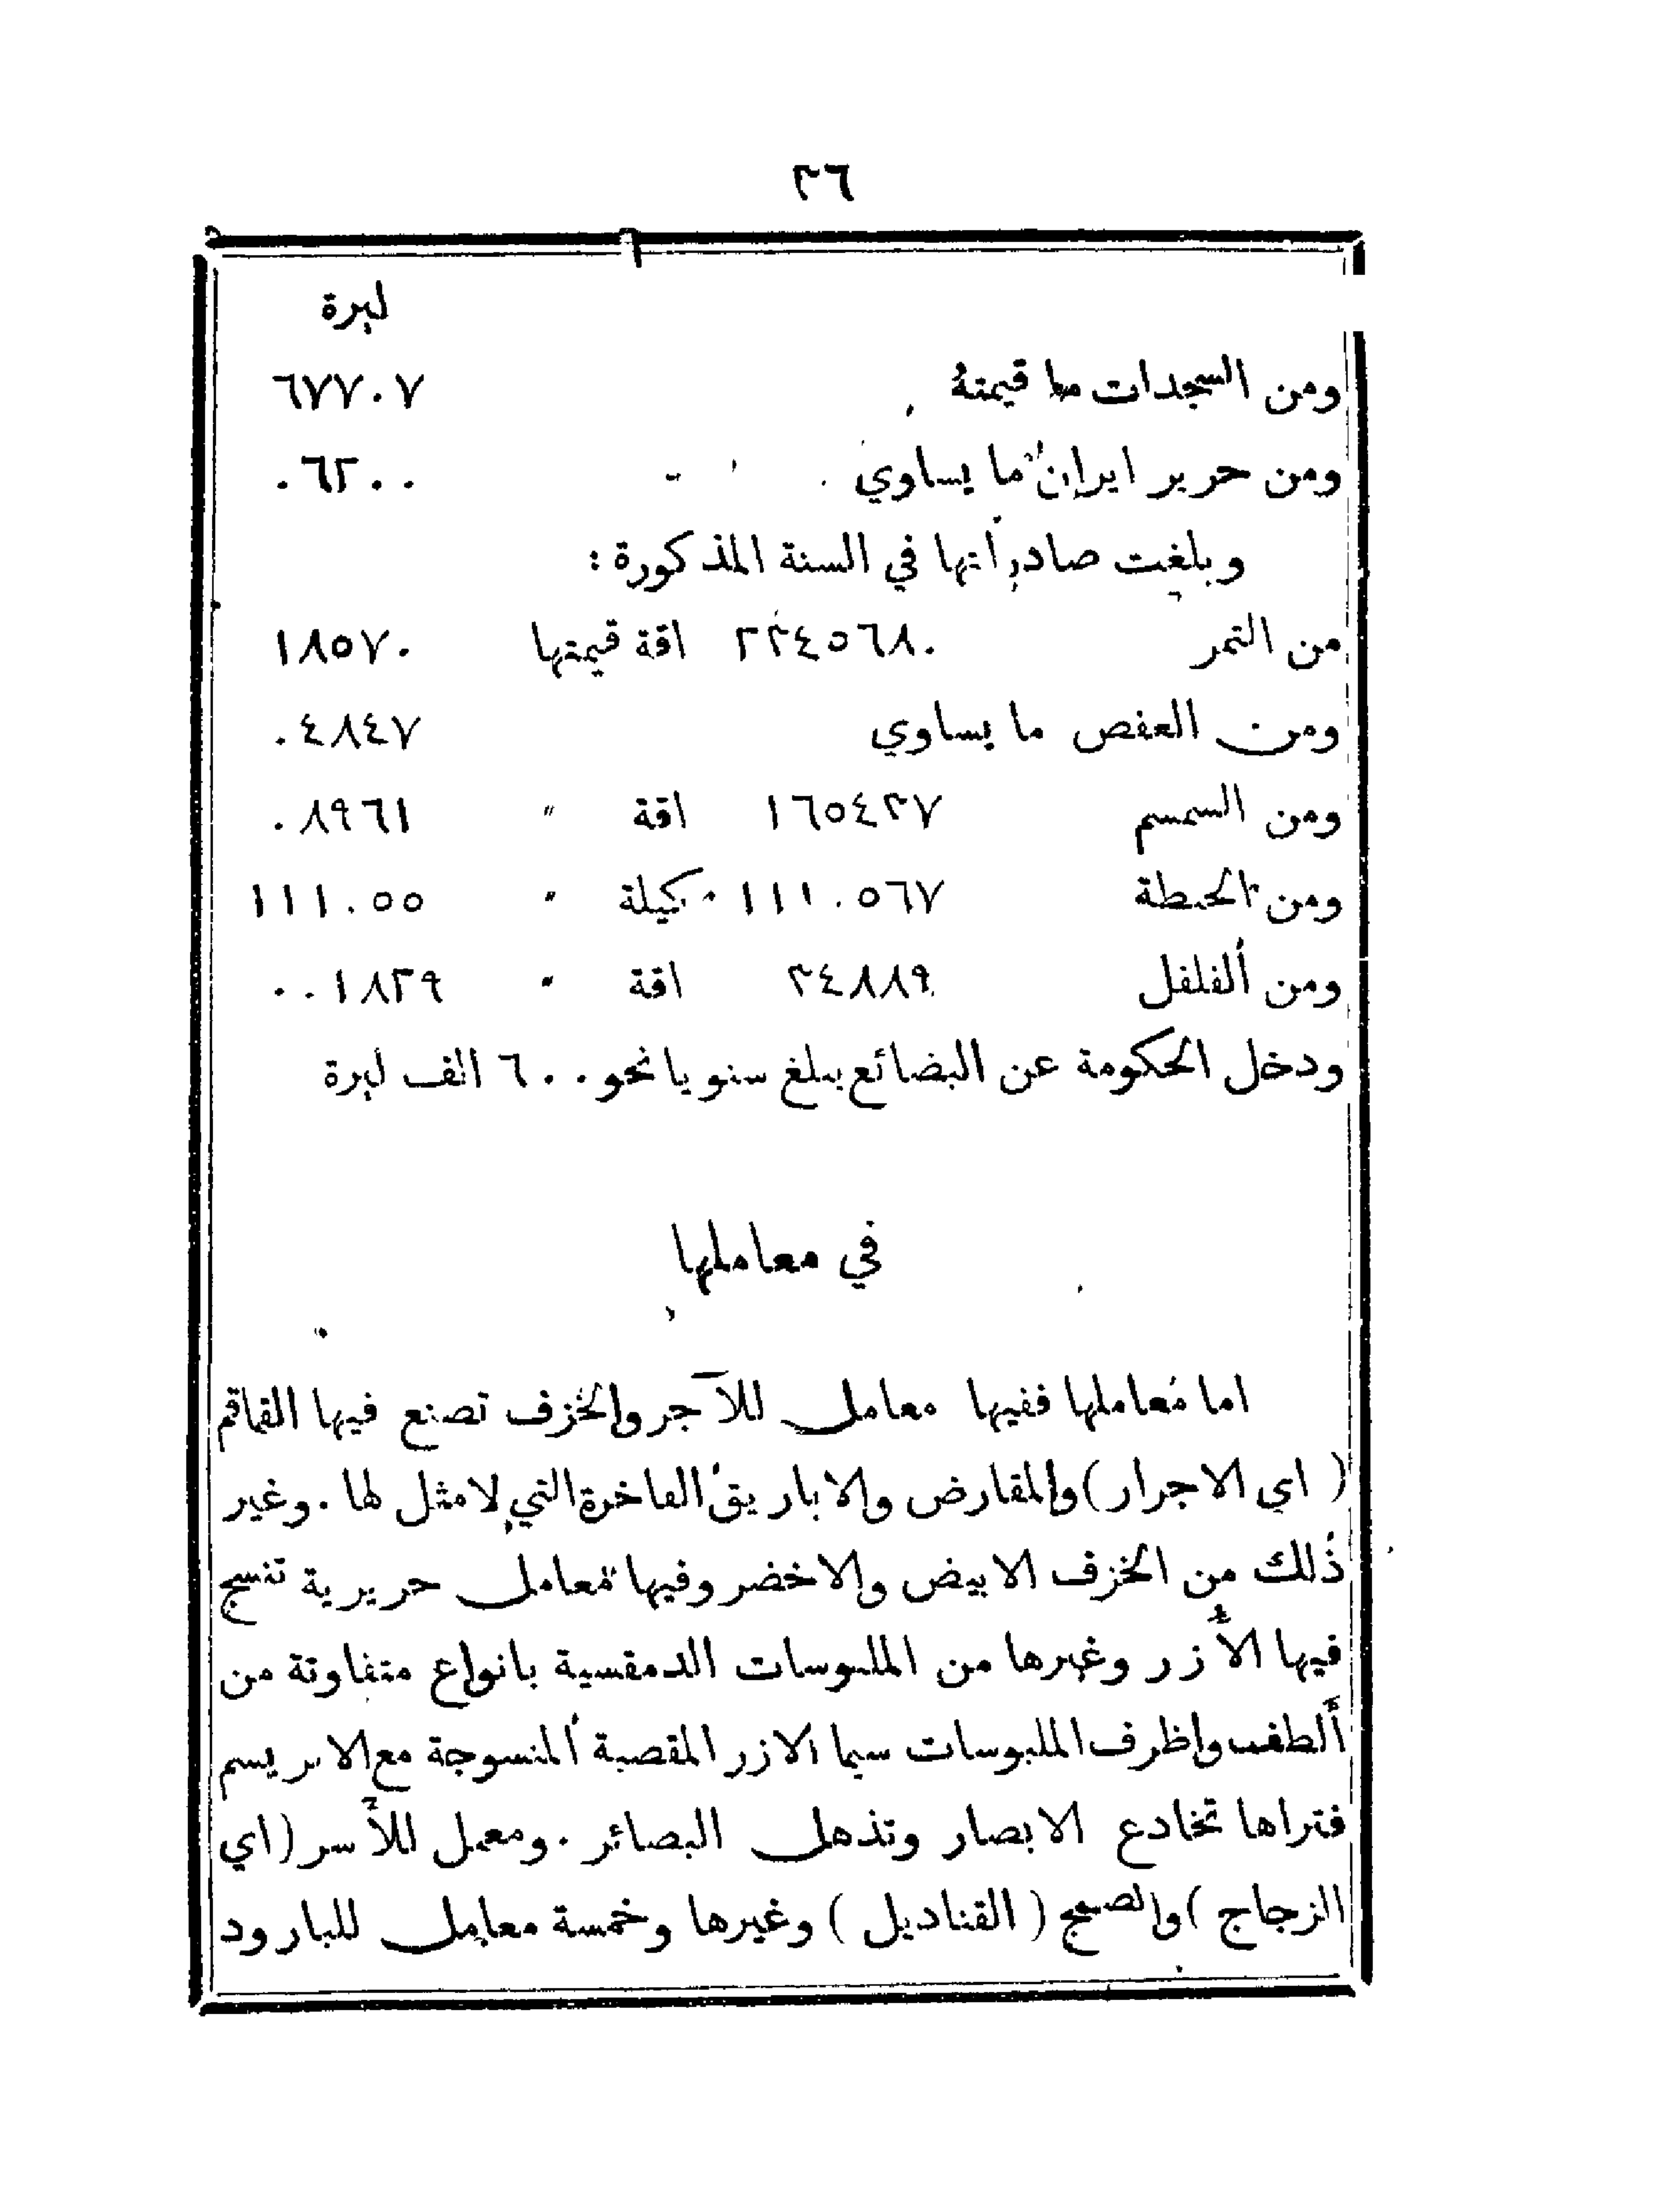 ٣٦
ليرة
ومن السجدات ما قيمتهُ ٦٧٧٠٧
ومن حرير ايران ما يساوي ٠٦٢٠٠
وبلغت صادراتها في السنة المذكورة :
من التمر ٢٢٤٥٦٨٠ اقة قيمتها ١٨٥٧٠
ومن العفص ما يساوي ٠٤٨٤٧
ومن السمسم ١٦٥٤٣٧ اقة " ٠٨٩٦١
ومن الحنطة ١١١٠٥٦٧ كيلة " ١١١٠٥٥
ومن الفلفل ٣٤٨٨٩ اقة " ٠٠١٨٢٩
ودخل الحكومة عن البضائع يبلغ سنويا نحو ٦٠٠ الف ليرة
في معاملها
اما معاملها ففيها معامل للآجر والخزف تصنع فيها القماقم
( اي الاجرار ) والمقارض والاباريق الفاخرة التي لا مثل لها . وغير
ذلك من الخزف الابيض والاخضر وفيها معامل حريرية تنسج
فيها الأزر وغيرها من الملبوسات الدمقسية بانواع متفاوتة من
ألطف واظرف الملبوسات سيما الازر المقصبة المنسوجة مع الابريسم
فتراها تخادع الابصار وتذهل البصائر . ومعمل للأسر ( اي
الزجاج ) والصمج ( القناديل ) وغيرها وخمسة معامل للبارود